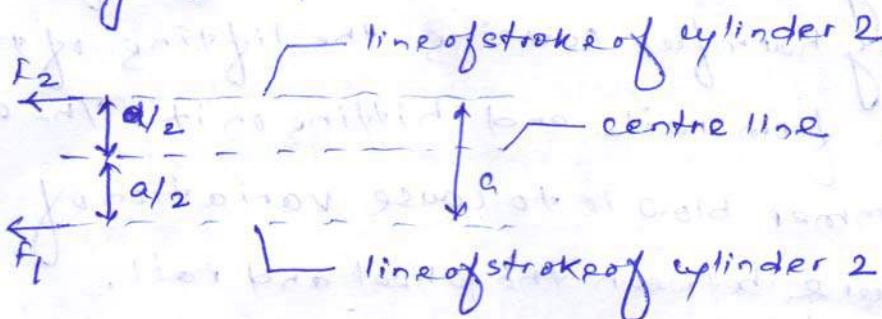 line of stroke of cylinder 2
F2
a/2
centre line
a/2
a
F1
line of stroke of cylinder 2